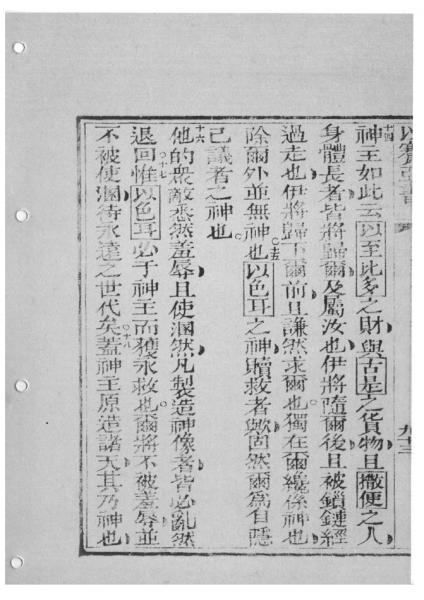 以賽亞書
九十三
十四神主如此云以至比多之財與古是之貨物且撒便之人
身體長者皆將歸爾及屬汝也伊將隨爾後且被鎖鏈經
過走也伊將歸下爾前且謙然求爾也獨在爾纔係神也
除爾外並無神也十五以色耳之神贖救者歟固然爾為自隱
己議者之神也
十六他的眾敵悉然羞辱且使溷然凡製造神像者皆必亂然
退回十七惟以色耳必于神主而獲永救也爾將不被羞辱並
不被使溷待永遠之世代矣十八蓋神主原造諸天其乃神也